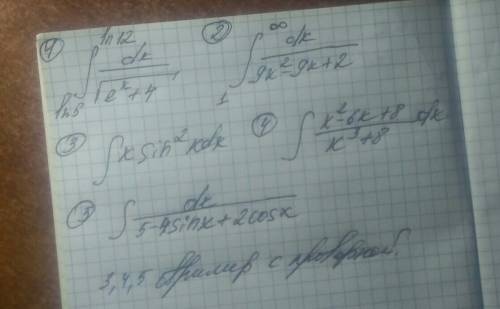 1) ∫_{ln5}^{ln12} dx/√(e^x+4), 2) ∫_1^∞ dx/(9x²-9x+2)
3) ∫x sin²x dx 4) ∫ (x²-6x+8)/(x³+8) dx
5) ∫ dx/(5-4sinx+2cosx)
3,4,5 с проверкой.